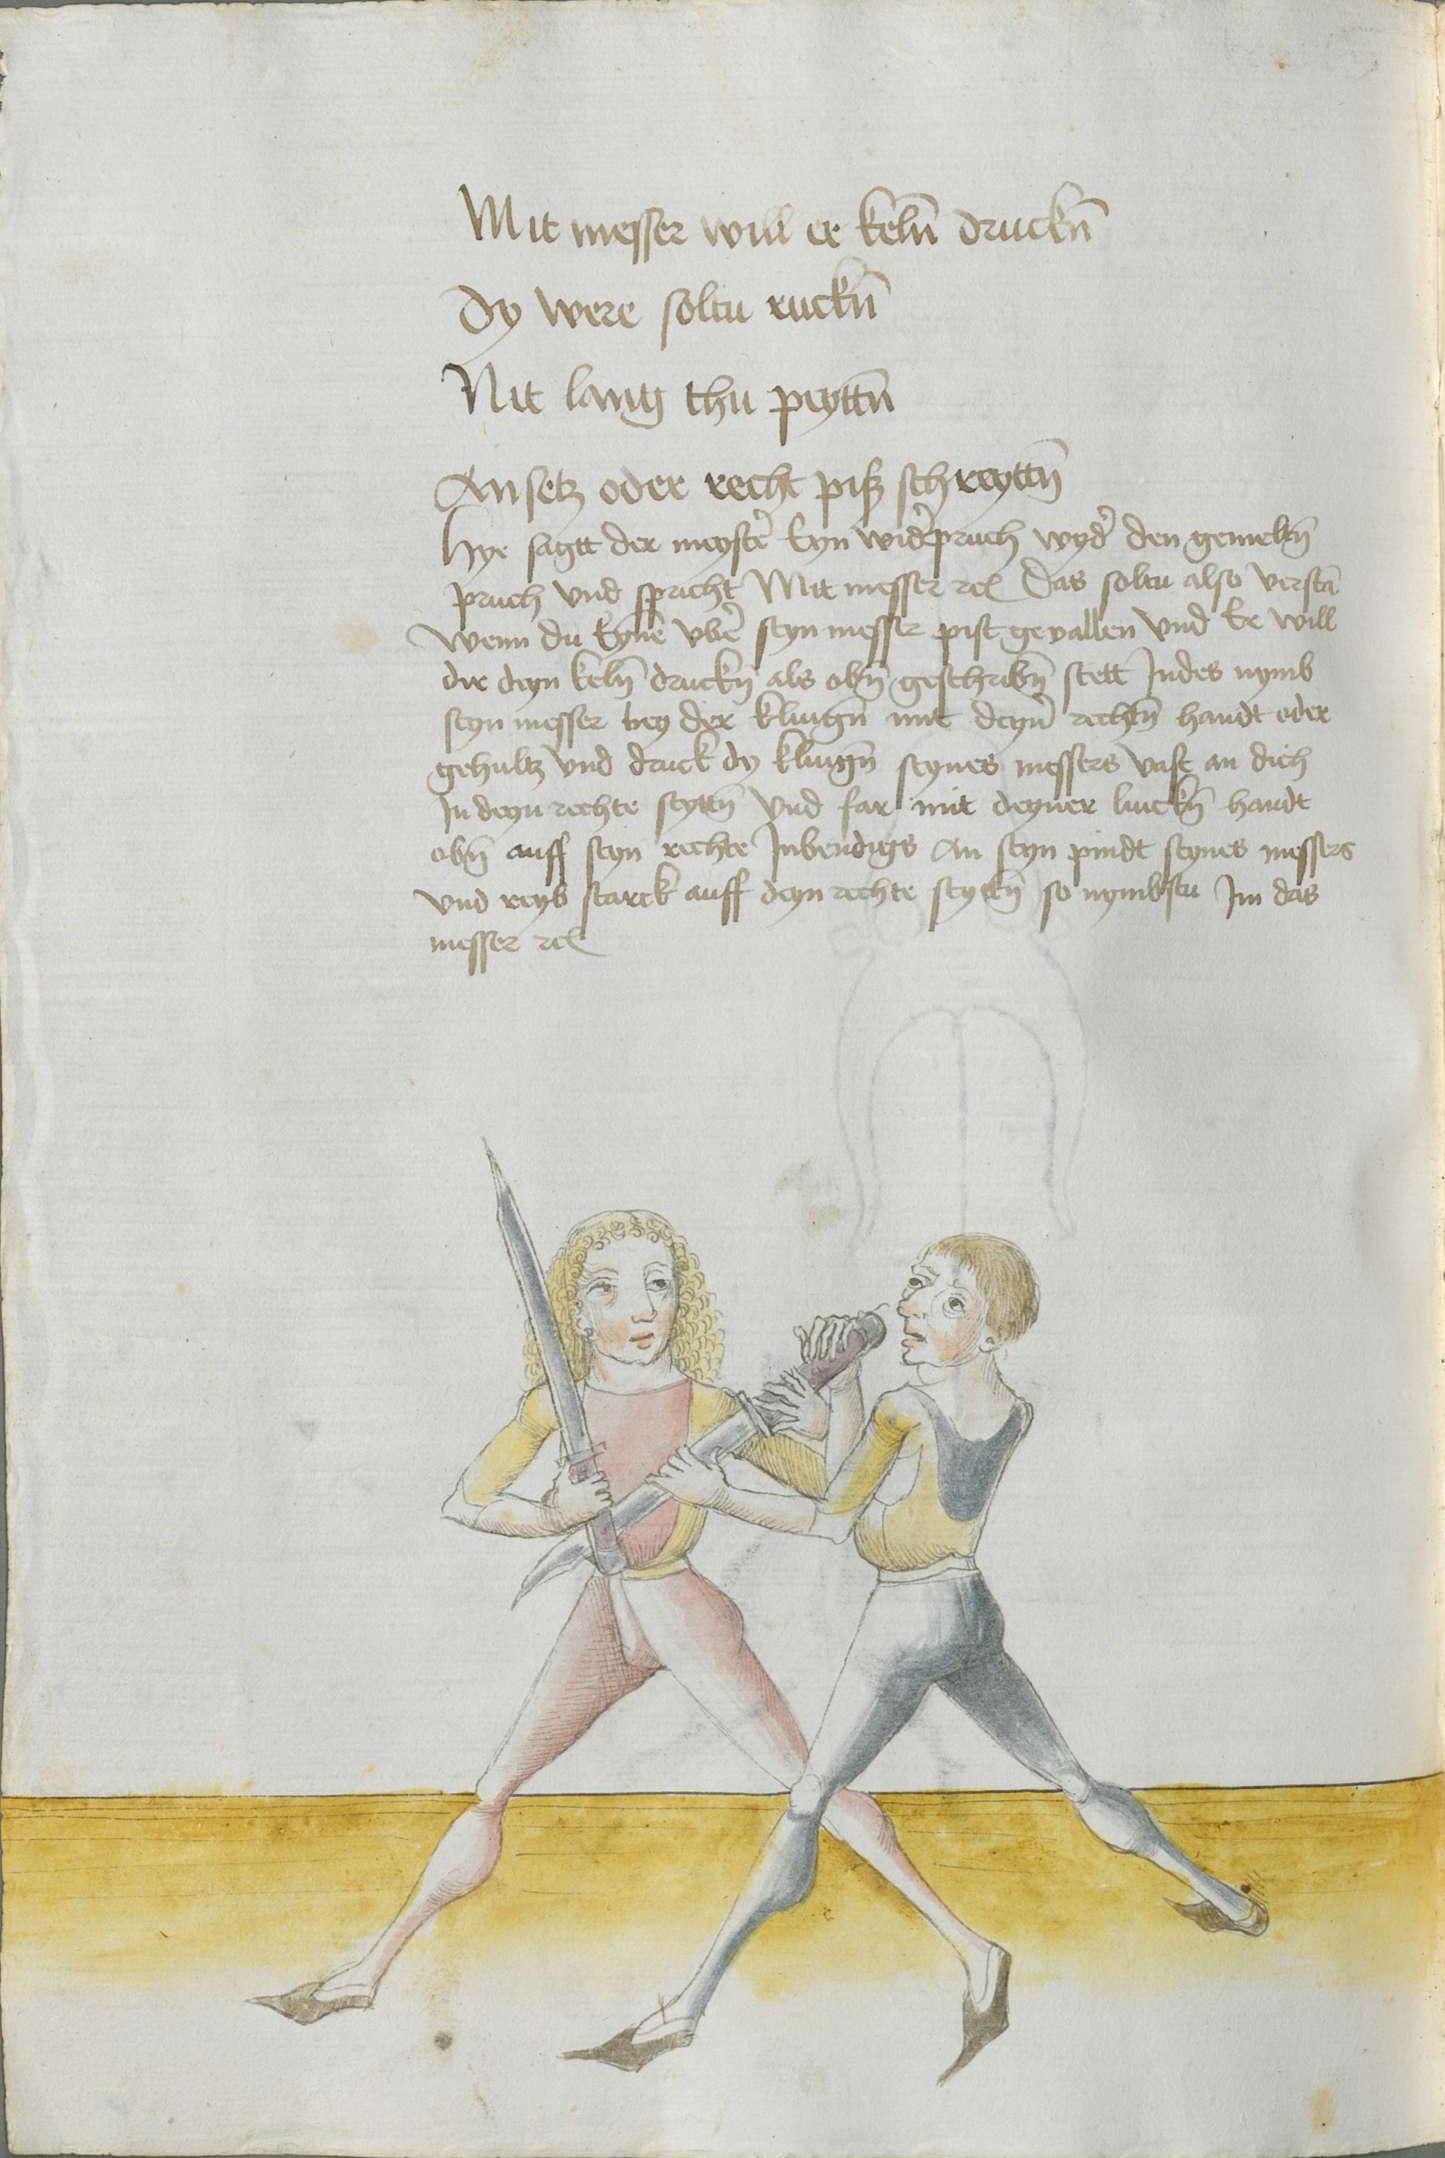 Mit messer will er keln̄ druckn̄
Dy were soltu ruckn̄
Nit lang thu peyttn̄
An setz oder recht piß schreyttn̄
Hye sagtt der meyster̉ Eyn wider̉pruch wyder̉ den gemeltn̄
pruch vnd spricht Mit messer rc̃ Das soltu also verstā
Wenn du Eynē vber̉ seyn messer pist gevallen vnd Er will
dir deyn keln̄ druckn̄ als obn̄ geschribn̄ stett Indes nymb
seyn messer bey der klingn̄ mit deyner̉ rechtn̄ handt oder
gehultz vnd druck dy klingn̄ seynes messers vast an dich
In deyn rechte seyttn̄ vnd far mit deyner linckn̄ handt
obn̄ auff seyn rechte Inbendigs An seyn pindt seynes messers
vnd reyb starck auff deyn rechte seyttn̄ so nymbstu Im das
messer rc̃